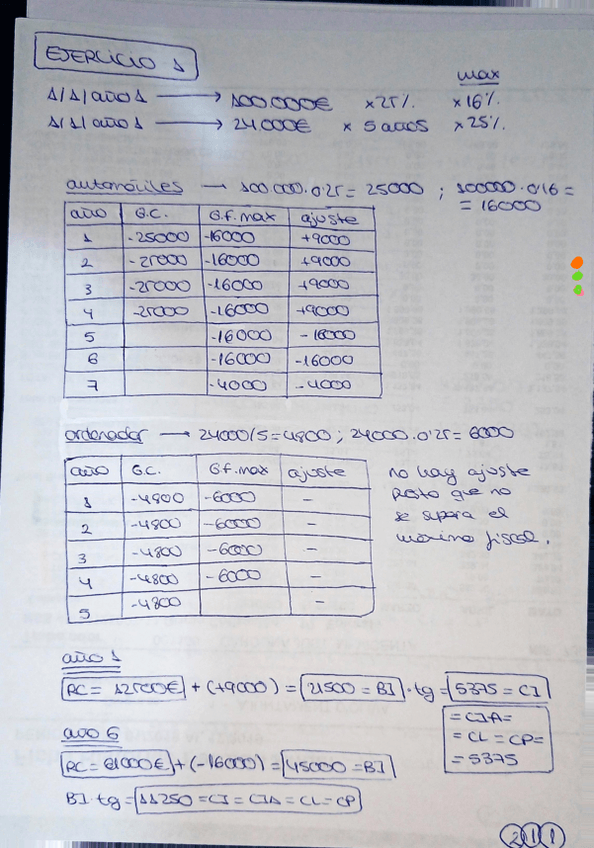 EJERCICIO 1
max
1/1/año 1 → 100.000€ x25% x16%
1/1/año 1 → 24.000€ x 5 años x25%
automóviles → 100.000·0'25 = 25000 ; 100000·0'16 =
= 16000
año G.C. G.f.max ajuste
1 -25000 -16000 +9000
2 -25000 -16000 +9000
3 -25000 -16000 +9000
4 -25000 -16000 +9000
5 -16000 -16000
6 -16000 -16000
7 -4000 -4000
ordenador → 24000/5=4800 ; 24000·0'25= 6000
año G.C. G.f.max ajuste
1 -4800 -6000 -
2 -4800 -6000 -
3 -4800 -6000 -
4 -4800 -6000 -
5 -4800 -
no hay ajuste
puesto que no
se supera el
máximo fiscal.
año 1
RC= 12500€ + (+9000) = 21500 = BI · tg = 5375 = CI
= CIA=
= CL = CP=
= 5375
año 6
RC= 61000€ + (-16000) = 45000 = BI
BI·tg= 11250 = CI = CIA = CL = CP
2 1 1